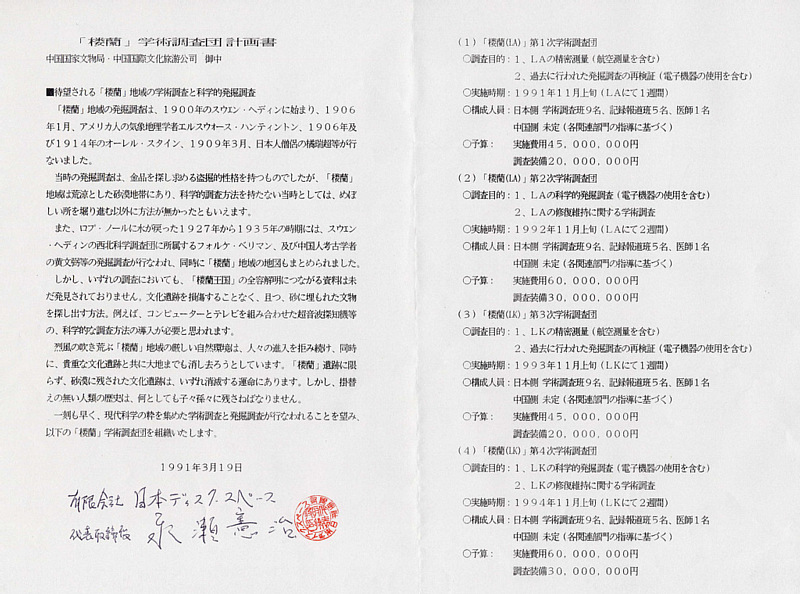 「楼蘭」学術調査団計画書
中国国家文物局・中国国際文化旅游公司　御中
■待望される「楼蘭」地域の学術調査と科学的発掘調査
「楼蘭」地域の発掘調査は、１９００年のスウエン・ヘディンに始まり、１９０６
年１月、アメリカ人の気象地理学者エルスウオース・ハンティントン、１９０６年及
び１９１４年のオーレル・スタイン、１９０９年３月、日本人僧侶の橘瑞超等が行
ないました。
当時の発掘調査は、金品を探し求める盗掘的性格を持つものでしたが、「楼蘭」
地域は荒涼とした砂漠地帯にあり、科学的調査方法を持たない当時としては、めぼ
しい所を堀り進む以外に方法が無かったともいえます。
また、ロプ・ノールに水が戻った１９２７年から１９３５年の時期には、スウエン
・ヘディンの西北科学調査団に所属するフォルケ・ベリマン、及び中国人考古学者
の黄文弼等の発掘調査が行なわれ、同時に「楼蘭」地域の地図もまとめられました。
しかし、いずれの調査においても、「楼蘭王国」の全容解明につながる資料は未
だ発見されておりません。文化遺跡を損傷することなく、且つ、砂に埋もれた文物
を探し出す方法。例えば、コンピューターとテレビを組み合わせた超音波探知機等
の、科学的な調査方法の導入が必要と思われます。
烈風の吹き荒ぶ「楼蘭」地域の厳しい自然環境は、人々の進入を拒み続け、同時
に、貴重な文化遺跡と共に大地までも消し去ろうとしています。「楼蘭」遺跡に限
らず、砂漠に残された文化遺跡は、いずれ消滅する運命にあります。しかし、掛替
えの無い人類の歴史は、何としても子々孫々に残さねばなりません。
一刻も早く、現代科学の粋を集めた学術調査と発掘調査が行なわれることを望み、
以下の「楼蘭」学術調査団を組織いたします。
１９９１年３月１９日
有限会社 日本ディスク・スペース
代表取締役 永瀬憲治
（１）「楼蘭(LA)」第１次学術調査団
○調査目的：１、ＬＡの精密測量（航空測量を含む）
２、過去に行われた発掘調査の再検証（電子機器の使用を含む）
○実施時期：１９９１年１１月上旬（ＬＡにて１週間）
○構成人員：日本側 学術調査班９名、記録報道班５名、医師１名
中国側 未定（各関連部門の指導に基づく）
○予算：　実施費用４５，０００，０００円
調査装備２０，０００，０００円
（２）「楼蘭(LA)」第２次学術調査団
○調査目的：１、ＬＡの科学的発掘調査（電子機器の使用を含む）
２、ＬＡの修復維持に関する学術調査
○実施時期：１９９２年１１月上旬（ＬＡにて２週間）
○構成人員：日本側 学術調査班９名、記録報道班５名、医師１名
中国側 未定（各関連部門の指導に基づく）
○予算：　実施費用６０，０００，０００円
調査装備３０，０００，０００円
（３）「楼蘭(LK)」第３次学術調査団
○調査目的：１、ＬＫの精密測量（航空測量を含む）
２、過去に行われた発掘調査の再検証（電子機器の使用を含む）
○実施時期：１９９３年１１月上旬（ＬＫにて１週間）
○構成人員：日本側 学術調査班９名、記録報道班５名、医師１名
中国側 未定（各関連部門の指導に基づく）
○予算：　実施費用４５，０００，０００円
調査装備２０，０００，０００円
（４）「楼蘭(LK)」第４次学術調査団
○調査目的：１、ＬＫの科学的発掘調査（電子機器の使用を含む）
２、ＬＫの修復維持に関する学術調査
○実施時期：１９９４年１１月上旬（ＬＫにて２週間）
○構成人員：日本側 学術調査班９名、記録報道班５名、医師１名
中国側 未定（各関連部門の指導に基づく）
○予算：　実施費用６０，０００，０００円
調査装備３０，０００，０００円